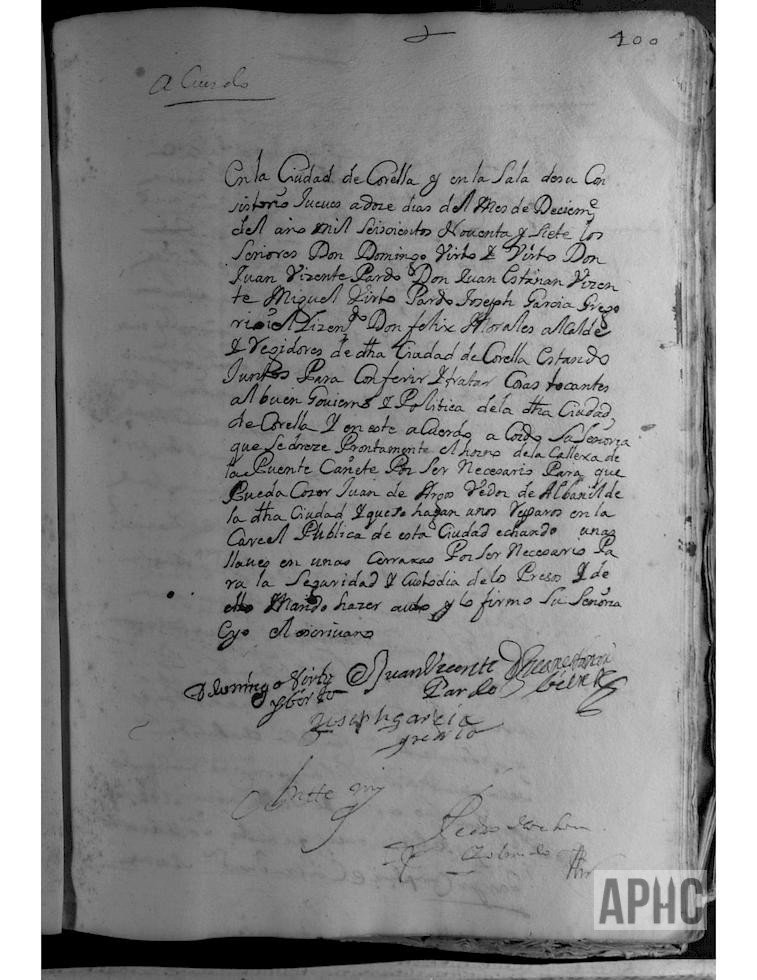 400
Acuerdo
En la Ciudad de Corella y en la Sala de su Con
sistorio Jueues a doze dias del Mes de Deciemᵉ
del año mil Seiscientos Nouenta y Siete los
Señores Don Domingo Virto & Virto Don
Juan Vizente Pardo Don Juan Estañan Vizen
te Miguel Virto Pardo Joseph Garcia Grego
rio el Lizenᵈᵒ Don felix Morales alcalde
Y Regidores de dha Ciudad de Corella Estando
Juntos Para Conferir Y tratar Cosas tocantes
al buen Gouierno Y Politica de la dha Ciudad
de Corella Y en este acuerdo a Cordo Su Señoria
que Se dreze Prontamente el horno de la Callexa de
la Puente Cañete Por Ser Necesario Para que
Pueda Cozer Juan de Argos Vedor de Albañil de
la dha Ciudad Y que se hagan unos Reparos en la
Carcel Publica de esta Ciudad echando unas
llaues en unas Cerraxas Por Ser Necesario Pa
ra la Seguridad Y Custodia de los Presos Y de
ello Mando hazer auto y lo firmo Su Señoria
E yo el escriuano
D domingo Virto Juan Vicente D Juan estañan
y birto Pardo
Joseph garcia
gregorio
Ante mi
Pedro